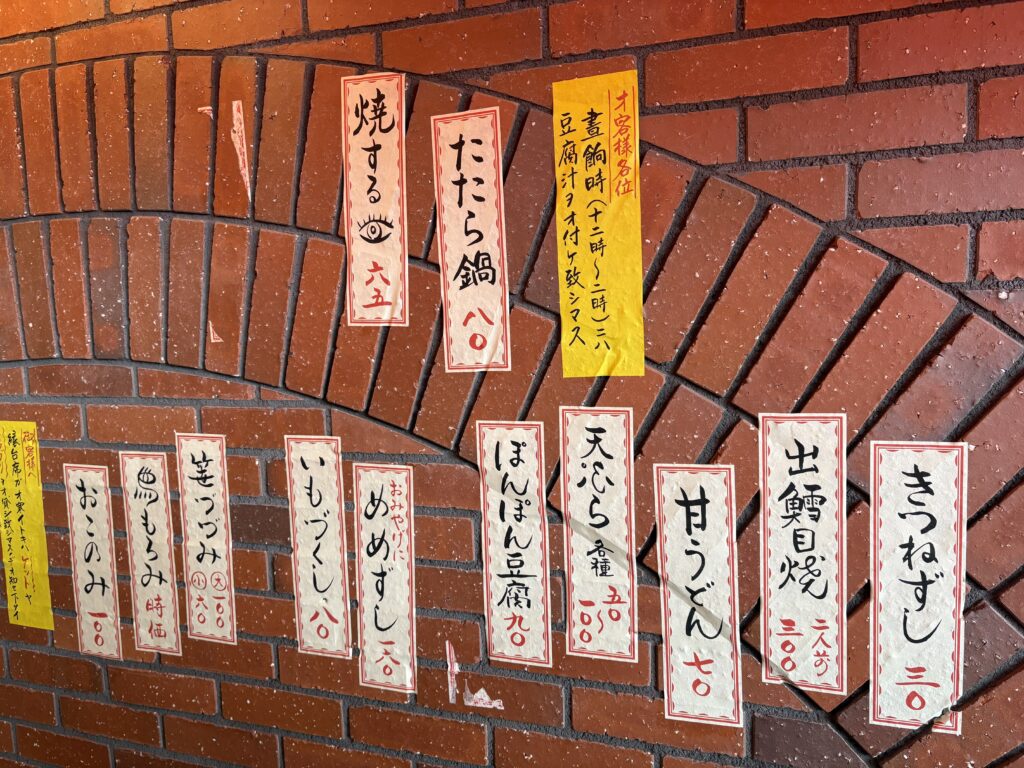 焼する
六五
たたら鍋
八〇
オ客様各位
晝餉時(十二時~二時)ニハ
豆腐汁ヲオ付ケ致シマス
きつねずし
三〇
出鱈目焼
二人前
三〇〇
甘うどん
七〇
天ぷら
各種
五〇~
一〇〇
ぽんぽん豆腐
九〇
おみやげに
めめずし
一六〇
いもづくし
八〇
づつみ
大一〇〇
小六〇
もろみ
時価
おこのみ
一〇〇